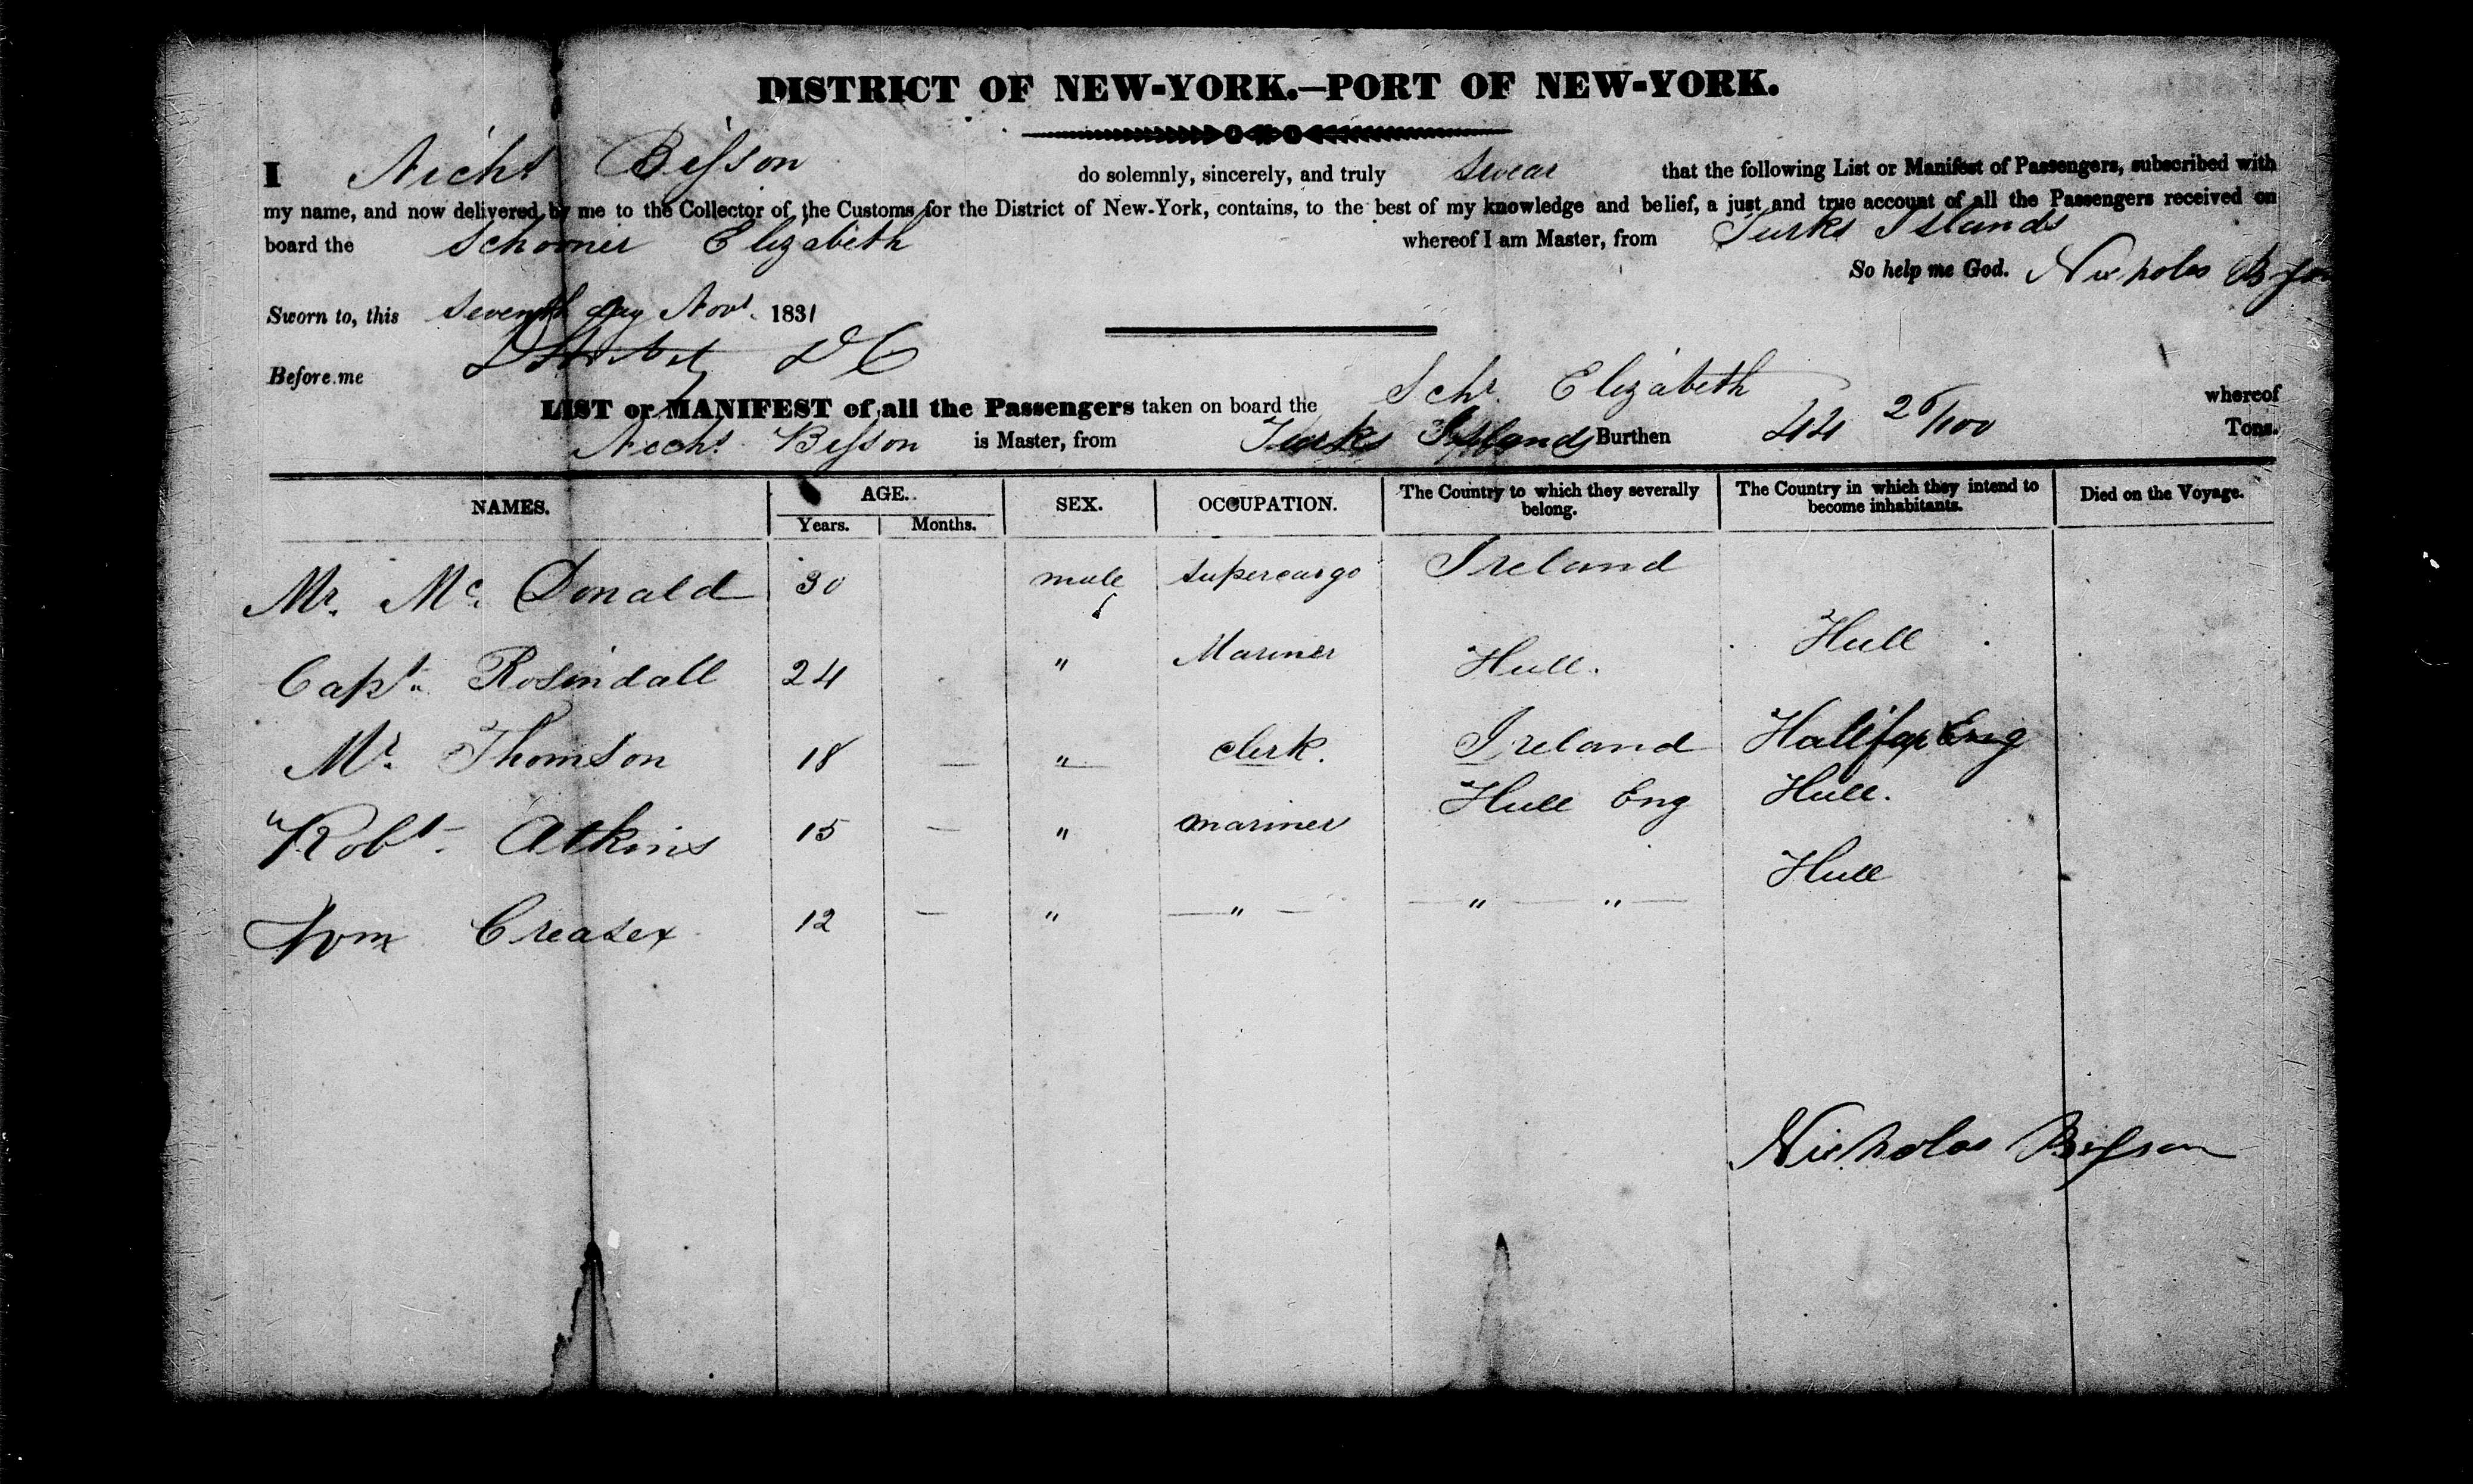 DISTRICT OF NEW-YORK.—PORT OF NEW-YORK.
I Nichs Bisson do solemnly, sincerely, and truly swear that the following List or Manifest of Passengers, subscribed with
my name, and now delivered by me to the Collector of the Customs for the District of New-York, contains, to the best of my knowledge and belief, a just and true account of all the Passengers received on
board the Schooner Elizabeth whereof I am Master, from Turks Islands
So help me God. Nicholas Bisson
Sworn to, this seventh day Novr. 1831
Before me D C
LIST or MANIFEST of all the Passengers taken on board the Schr. Elizabeth whereof
Nichs. Bisson is Master, from Turks Islands Burthen 44 26/100 Tons.
NAMES. AGE. SEX. OCCUPATION. The Country to which they severally belong. The Country in which they intend to become inhabitants. Died on the Voyage.
Years. Months.
Mr. Mc. Donald 30 male supercargo Ireland
Capt. Rosindall 24 " Mariner Hull. Hull
Mr. Thomson 18 — " clerk. Ireland Halifax Eng
"Robt. Atkins 15 — " mariner Hull Eng Hull.
Wm Creasex 12 — " — " — — " — " — Hull
Nicholas Bisson